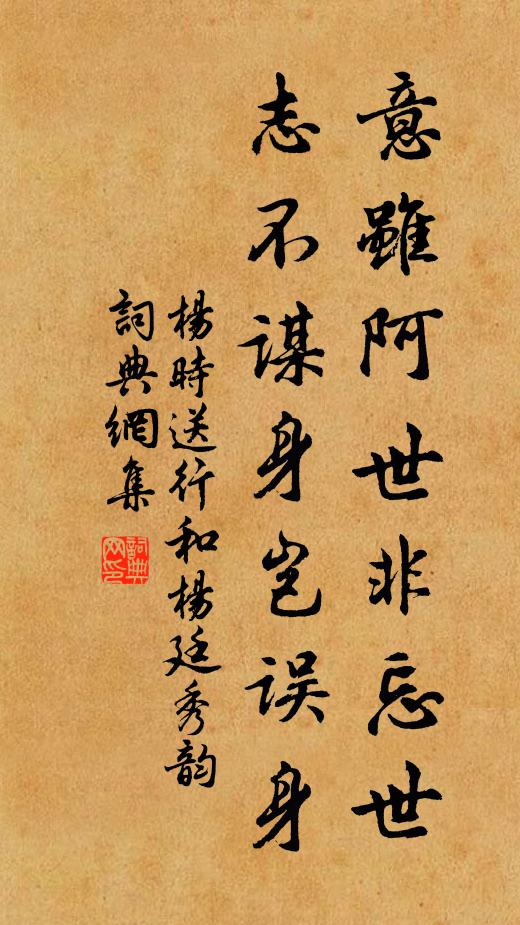 意雖阿世非忘世
志不谋身岂误身
楊時送行和楊廷秀韵
詞典網集
詞典网印